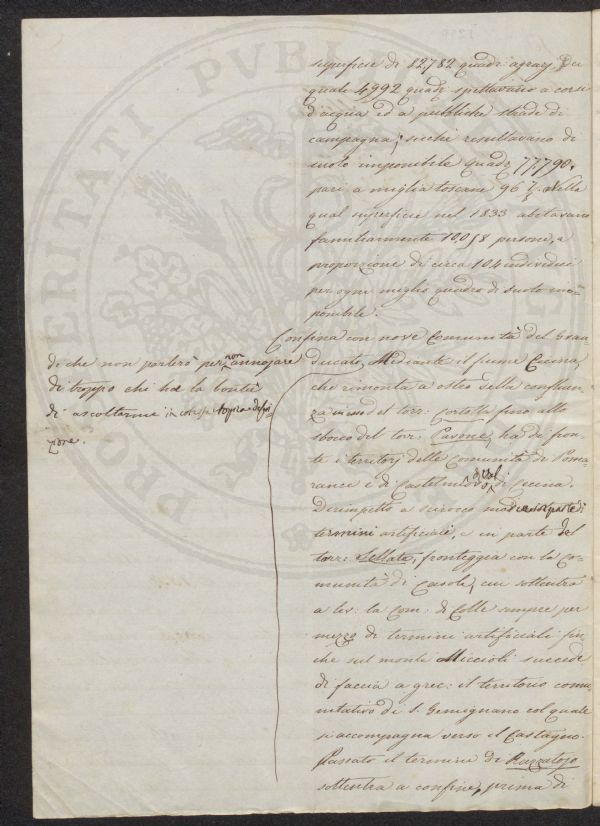 superficie di 82782 quadr: agrarj. Dei
quali 4992 quadr: spettavano a corsi
d'acqua ed a pubbliche strade di
campagna; sicchè resultavano di
suolo imponibile quadr: 77,790,
pari a miglia toscane 96 nella
qual superficie nel 1833 abitavano
familiarmente 10,058 persone, a
proporzione di circa 104 individui
per ogni miglio quadro di suolo im=
ponibile.
Confina con nove Comunità del Gran
ducato, Mediante il fiume Cecina,
che rimonta a ostro sulla confluen
za del torr: fino allo
sbocco del torr: Pavone, ha di fron
te i territorj delle Comunità di Poma
rance e di Castelnuovo di val di Cecina.
Dirimpetto a scirocco
termini artificiali, e in parte del
torr: Sellate, fronteggia con la Co
munità di Casole, cui sottentra
a lev: la Com: di Colle sempre per
mezzo di termini artificiali fin
che sul monte Miccioli succede
di faccia a grec: il territorio comu
nitativo di S. Gemignano col quale
si accompagna verso il Castagno.
Passato il termine di
sottentra a confine, prima di
di che non parlerò per non annojare
di troppo chi ha la bontà
di ascoltarmi in
zione.
PRO VERITATI PVBLI